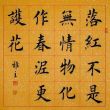 落紅不是
無情物化
作春泥更
護花